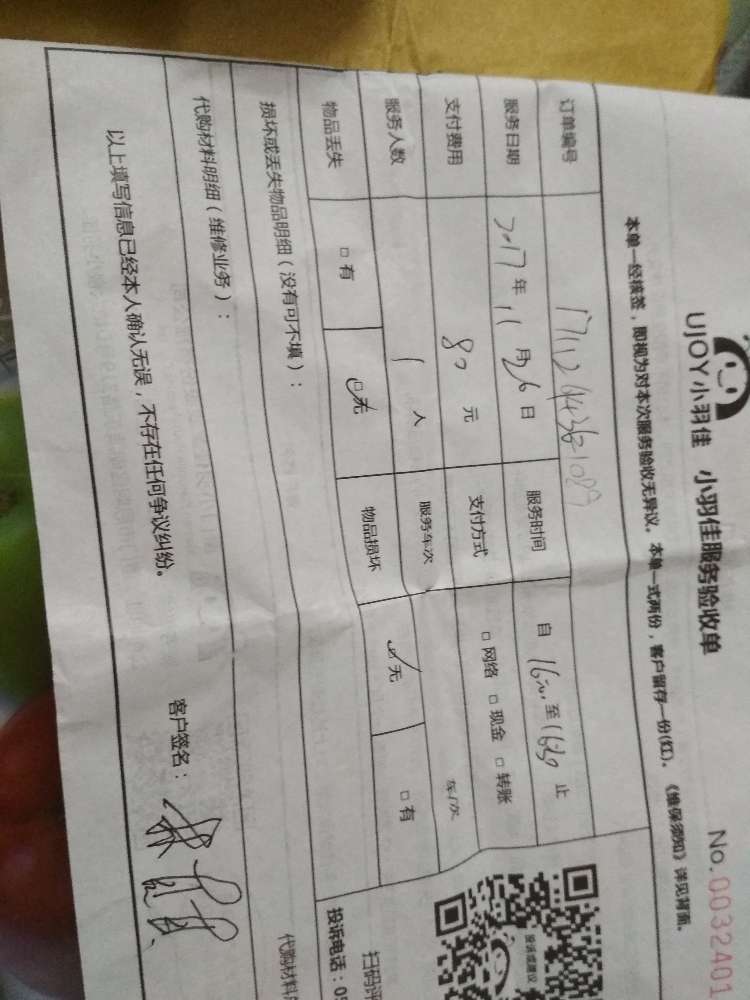 UJOY小羽佳 小羽佳服务验收单
No.0032401
本单一经接签，即视为对本次服务验收无异议。本单一式两份，客户留存一份(红)。《维保须知》详见背面。
订单编号
服务日期 2017年 11月26日 服务时间 自 至1630 止
支付费用 80 元 支付方式 □网络 □现金 □转账
服务人数 1 人 服务车次 车/次
物品丢失 □有 □无 物品损坏 □无 □有
损坏或丢失物品明细（没有可不填）：
代购材料明细（维修业务）：
以上填写信息已经本人确认无误，不存在任何争议纠纷。
客户签名：
投诉或建议
扫码评
投诉电话：05
代购材料